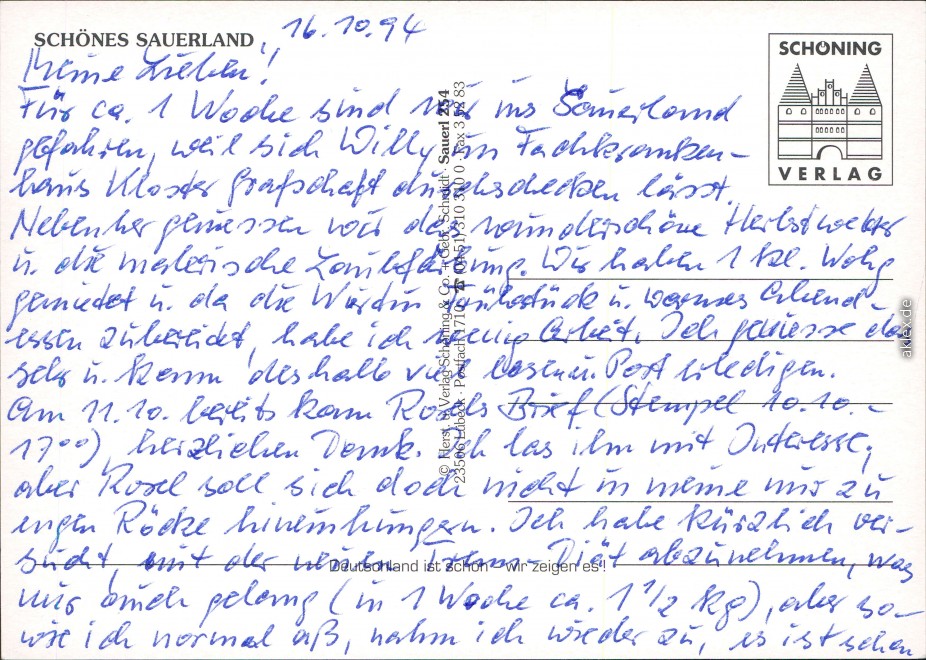 SCHÖNES SAUERLAND, 16.10.94
SCHÖNING
VERLAG
Meine Lieben!
Für ca. 1 Woche sind wir ins Sauerland
gefahren, weil sich Willy im Fachkranken-
haus Kloster Grafschaft durchschecken lässt.
Nebenher geniessen wir das wunderschöne Herbstwetter
u. die malerische Laubfärbung. Wir haben 1 kl. Wohg
gemietet u. da die Wirtin Frühstück u. warmes Abend-
essen zubereitet, habe ich wenig Arbeit. Ich geniesse das
sehr u. kann deshalb viel lesen u. Post erledigen.
Am 11.10. bereits kam Rosels Brief (Stempel 10.10.-
17⁰⁰), herzlichen Dank. Ich las ihn mit Interesse,
aber Rosel soll sich doch nicht in meine mir zu
engen Röcke hineinhungern. Ich habe kürzlich ver-
sucht, mit der neuen Diät abzunehmen, was
mir auch gelang (in 1 Woche ca. 1 1/2 kg), aber so-
wie ich normal aß, nahm ich wieder zu, es ist schon
Deutschland ist schön - wir zeigen es!
© Horst, b. Verlag Schöning & Co. + Gebr. Schmidt · Sauerl 254
23506 Lübeck · Postfach 1710 · ☎ 04 51/310 310 · Fax 3 52 83
akpool.de